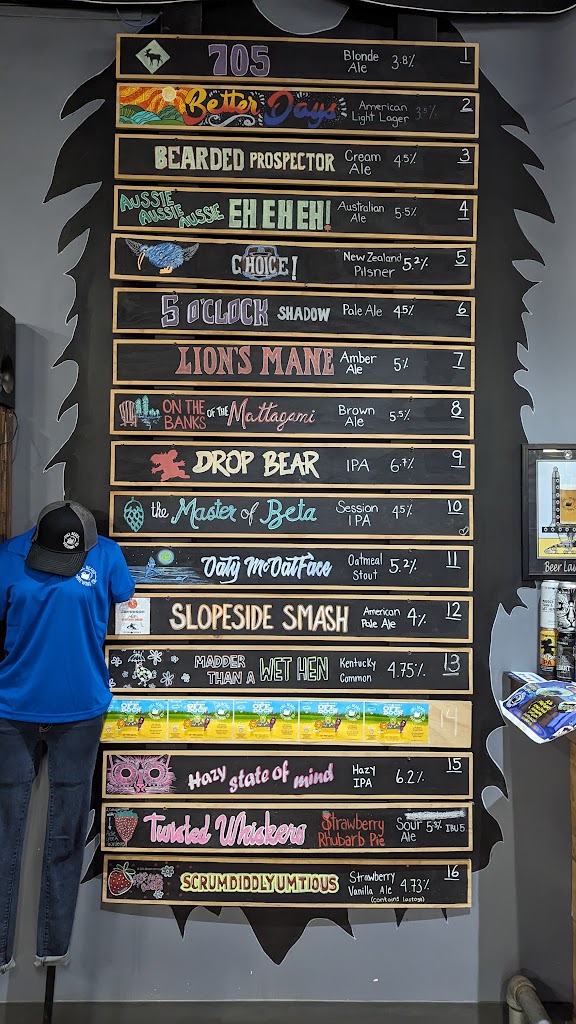 705 Blonde Ale 3.8% 1
Better Days American Light Lager 3.5% 2
BEARDED PROSPECTOR Cream Ale 4.5% 3
AUSSIE AUSSIE AUSSIE EH EH EH! Australian Ale 5.5% 4
CHOICE! New Zealand Pilsner 5.2% 5
5 O'CLOCK SHADOW Pale Ale 4.5% 6
LION'S MANE Amber Ale 5% 7
ON THE BANKS OF THE Mattagami Brown Ale 5.5% 8
DROP BEAR IPA 6.7% 9
the Master of Beta Session IPA 4.5% 10
Oaty McOatFace Oatmeal Stout 5.2% 11
SLOPESIDE SMASH American Pale Ale 4% 12
MADDER THAN A WET HEN Kentucky Common 4.75% 13
14
Hazy state of mind Hazy IPA 6.2% 15
Twisted Whiskers Strawberry Rhubarb Pie Sour Ale 5.3% IBU 5
SCRUMDIDDLYUMTIOUS Strawberry Vanilla Ale 4.73% 16
(contains lactose)
Beer Law